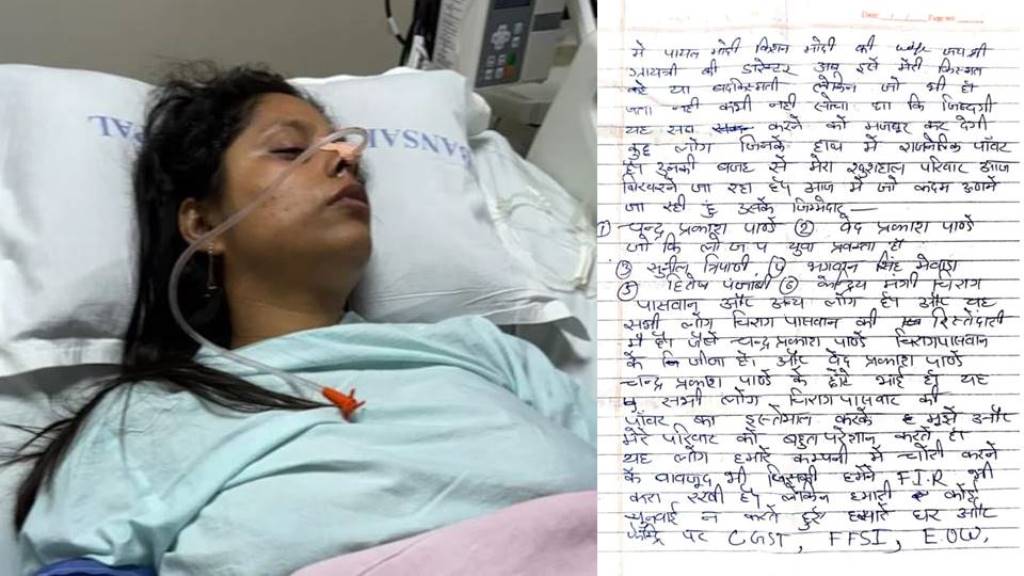 BANSAL
Date: / / Page no:
मे पायल मोदी किशन मोदी की wife जयश्री
गायत्री की डारेक्टर आब इसे मेरी किस्मत
कहे या बदकिस्मती लेकिन जो भी हो
पता नही कभी नही सोचा था कि जिन्दगी
यह सब करने को मजबूर कर देगी
कुछ लोग जिनके हाथ मे राजनैतिक पॉवर
है। इनकी वजह से मेरा खुशहाल परिवार आज
बिखरने जा रहा है। आज मे जो कदम उठाने
जा रही हुं उसके जिम्मेदार —
① चन्द्र प्रकाश पाण्डे ② वेद प्रकाश पाण्डे
जो कि लो ज प युवा प्रवक्ता है
③ सुनील त्रिपाठी ④ भगवान सिंह मेवाडा
⑤ हितेष पंजाबी ⑥ केन्द्रिय मंत्री चिराग
पासवान और अन्य लोग है। और यह
सभी लोग चिराग पासवान की रिस्तेदारी
मे है। जैसे चन्द्र प्रकाश पाण्डे चिराग पासवान
के जीजा है। और वेद प्रकाश पाण्डे
चन्द्र प्रकाश पाण्डे के छोटे भाई है। यह
सभी लोग चिराग पासवान की
पॉवर का इस्तेमाल करके मुझे और
मेरे परिवार को बहुत परेशान करते है।
यह लोग हमारे कम्पनी मे चोरी करने
के वावजूद भी जिसकी हमने F.I.R भी
करा रखी है। लेकिन हमारी कोई
सुनवाई न करते हुए हमारे घर और
फेक्ट्रि पर CGST, FFSI, E.O.W,